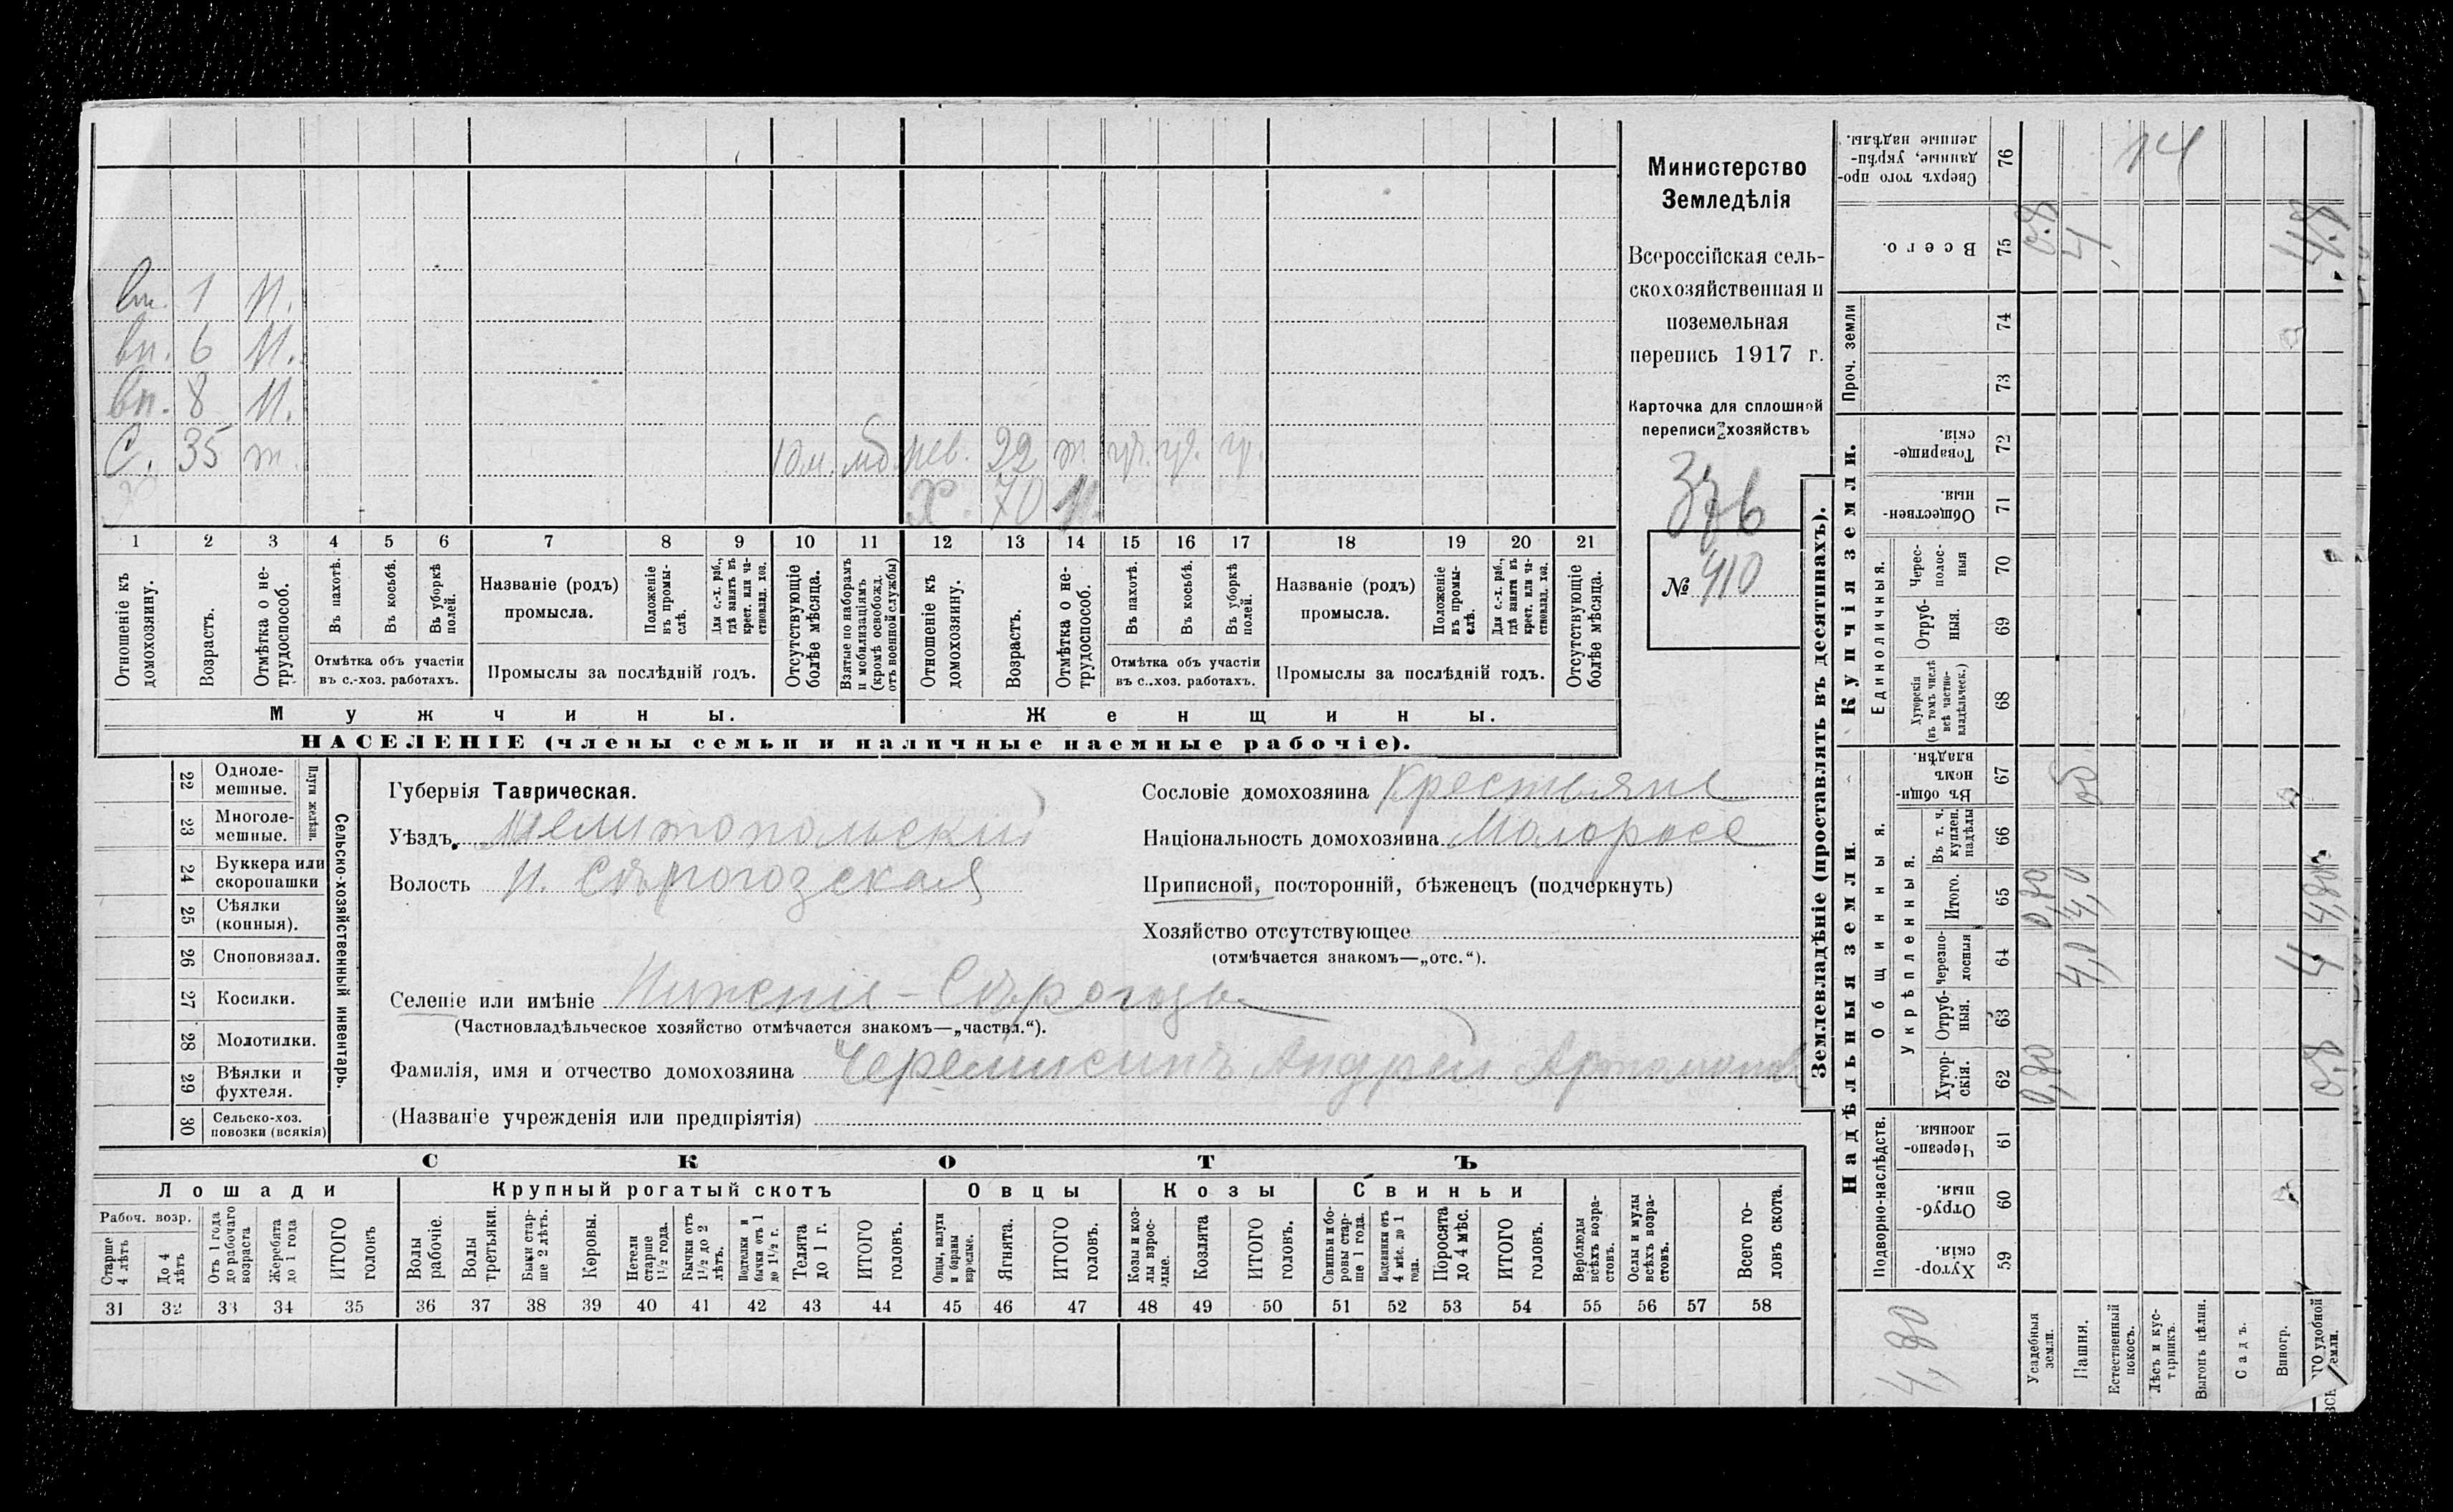 вн. 1 н.
вн. 6 н.
вн. 8 н.
С. 35 т. 10м. мб. нев. 22 т. гр. гр. гр.
Х. 70 н.
1 2 3 4 5 6 7 8 9 10 11 12 13 14 15 16 17 18 19 20 21
Отношеніе къ домохозяину.
Возрастъ.
Отмѣтка о нетрудоспособ.
Въ пахотѣ.
Въ косьбѣ.
Въ уборкѣ полей.
Отмѣтка объ участіи въ с.-хоз. работахъ.
Названіе (родъ) промысла.
Положеніе въ промыслѣ.
Для с.-х. раб., гдѣ занятъ въ крест. или частновлад. хоз.
Промыслы за послѣдній годъ.
Отсутствующіе болѣе мѣсяца.
Взятые по наборамъ и мобилизаціямъ (кромѣ освобожд. отъ военной службы)
Отношеніе къ домохозяину.
Возрастъ.
Отмѣтка о нетрудоспособ.
Въ пахотѣ.
Въ косьбѣ.
Въ уборкѣ полей.
Отмѣтка объ участіи въ с..хоз. работахъ.
Названіе (родъ) промысла.
Положеніе въ промыслѣ.
Для с.-х. раб., гдѣ занята въ крест. или частновлад. хоз.
Промыслы за послѣдній годъ.
Отсутствующіе болѣе мѣсяца.
Мужчины.
Женщины.
НАСЕЛЕНІЕ (члены семьи и наличные наемные рабочіе).
Министерство
Земледѣлія
Всероссійская сель-
скохозяйственная и
поземельная
перепись 1917 г.
Карточка для сплошной
переписи хозяйствъ
376
№ 410
22 Одноле-
мешные.
23 Многоле-
мешные.
Плуги желѣзн.
24 Буккера или
скоропашки
25 Сѣялки
(конныя).
26 Сноповязал.
27 Косилки.
28 Молотилки.
29 Вѣялки и
фухтеля.
30 Сельско-хоз.
повозки (всякія)
Сельско-хозяйственный инвентарь.
Губернія Таврическая.
Уѣздъ Мелитопольскій
Волость Н. Сѣрогозская
Сословіе домохозяина Крестьяне
Національность домохозяина Малороссъ
Приписной, посторонній, бѣженецъ (подчеркнуть)
Хозяйство отсутствующее
(отмѣчается знакомъ—„отс.“).
Селеніе или имѣніе Нижніе-Сѣрогозы
(Частновладѣльческое хозяйство отмѣчается знакомъ—„частвл.“).
Фамилія, имя и отчество домохозяина Черемисинъ Андрей Артамонов
(Названіе учрежденія или предпріятія)
СКОТЪ
Лошади
Крупный рогатый скотъ
Овцы
Козы
Свиньи
Рабоч. возр.
Старше 4 лѣтъ
До 4 лѣтъ
Отъ 1 года до рабочаго возраста
Жеребята до 1 года
ИТОГО головъ
Волы рабочіе.
Волы третьяки.
Быки старше 2 лѣтъ.
Коровы.
Нетели старше 1½ года.
Бычки отъ 1½ до 2 лѣтъ.
Подтелки и бычки отъ 1 до 1½ г.
Телята до 1 г.
ИТОГО головъ.
Овцы, валухи и бараны взрослые.
Ягнята.
ИТОГО головъ.
Козы и козлы взрослые.
Козлята
ИТОГО головъ.
Свиньи и боровы старше 1 года.
Подсвинки отъ 4 мѣс. до 1 года.
Поросята до 4 мѣс.
ИТОГО головъ.
Верблюды всѣхъ возрастовъ.
Ослы и мулы всѣхъ возрастовъ.
Всего головъ скота.
31 32 33 34 35 36 37 38 39 40 41 42 43 44 45 46 47 48 49 50 51 52 53 54 55 56 57 58
Землевладѣніе (проставлять въ десятинахъ).
Купчія земли.
Надѣльныя земли.
Сверхъ того проданные, укрѣпленные надѣлы. 76 14
Всего. 75 0.8 4 4.8
Проч. земли 74
73
Товарищескія. 72
Общественныя. 71
Единоличныя.
Чересполосныя 70
Отрубныя. 69
Хуторскія (въ томъ числѣ всѣ частновладѣльческ.) 68
Общинныя.
Въ общинномъ владѣн. 67
Укрѣпленныя.
Въ т. ч. куплен. надѣлы 66
Итого. 65 0,80 4,0 4,80
Черезполосныя 64 4,0 4
Отрубныя. 63
Хуторскія. 62 0,80 0,8
Подворно-наслѣдств.
Черезполосныя. 61
Отрубныя. 60
Хуторскія. 59
4,80
Усадебныя земли.
Пашня.
Естественный покосъ.
Лѣсъ и кустарникъ.
Выгонъ цѣлин.
Садъ.
Виногр.
ГО удобной
земли.